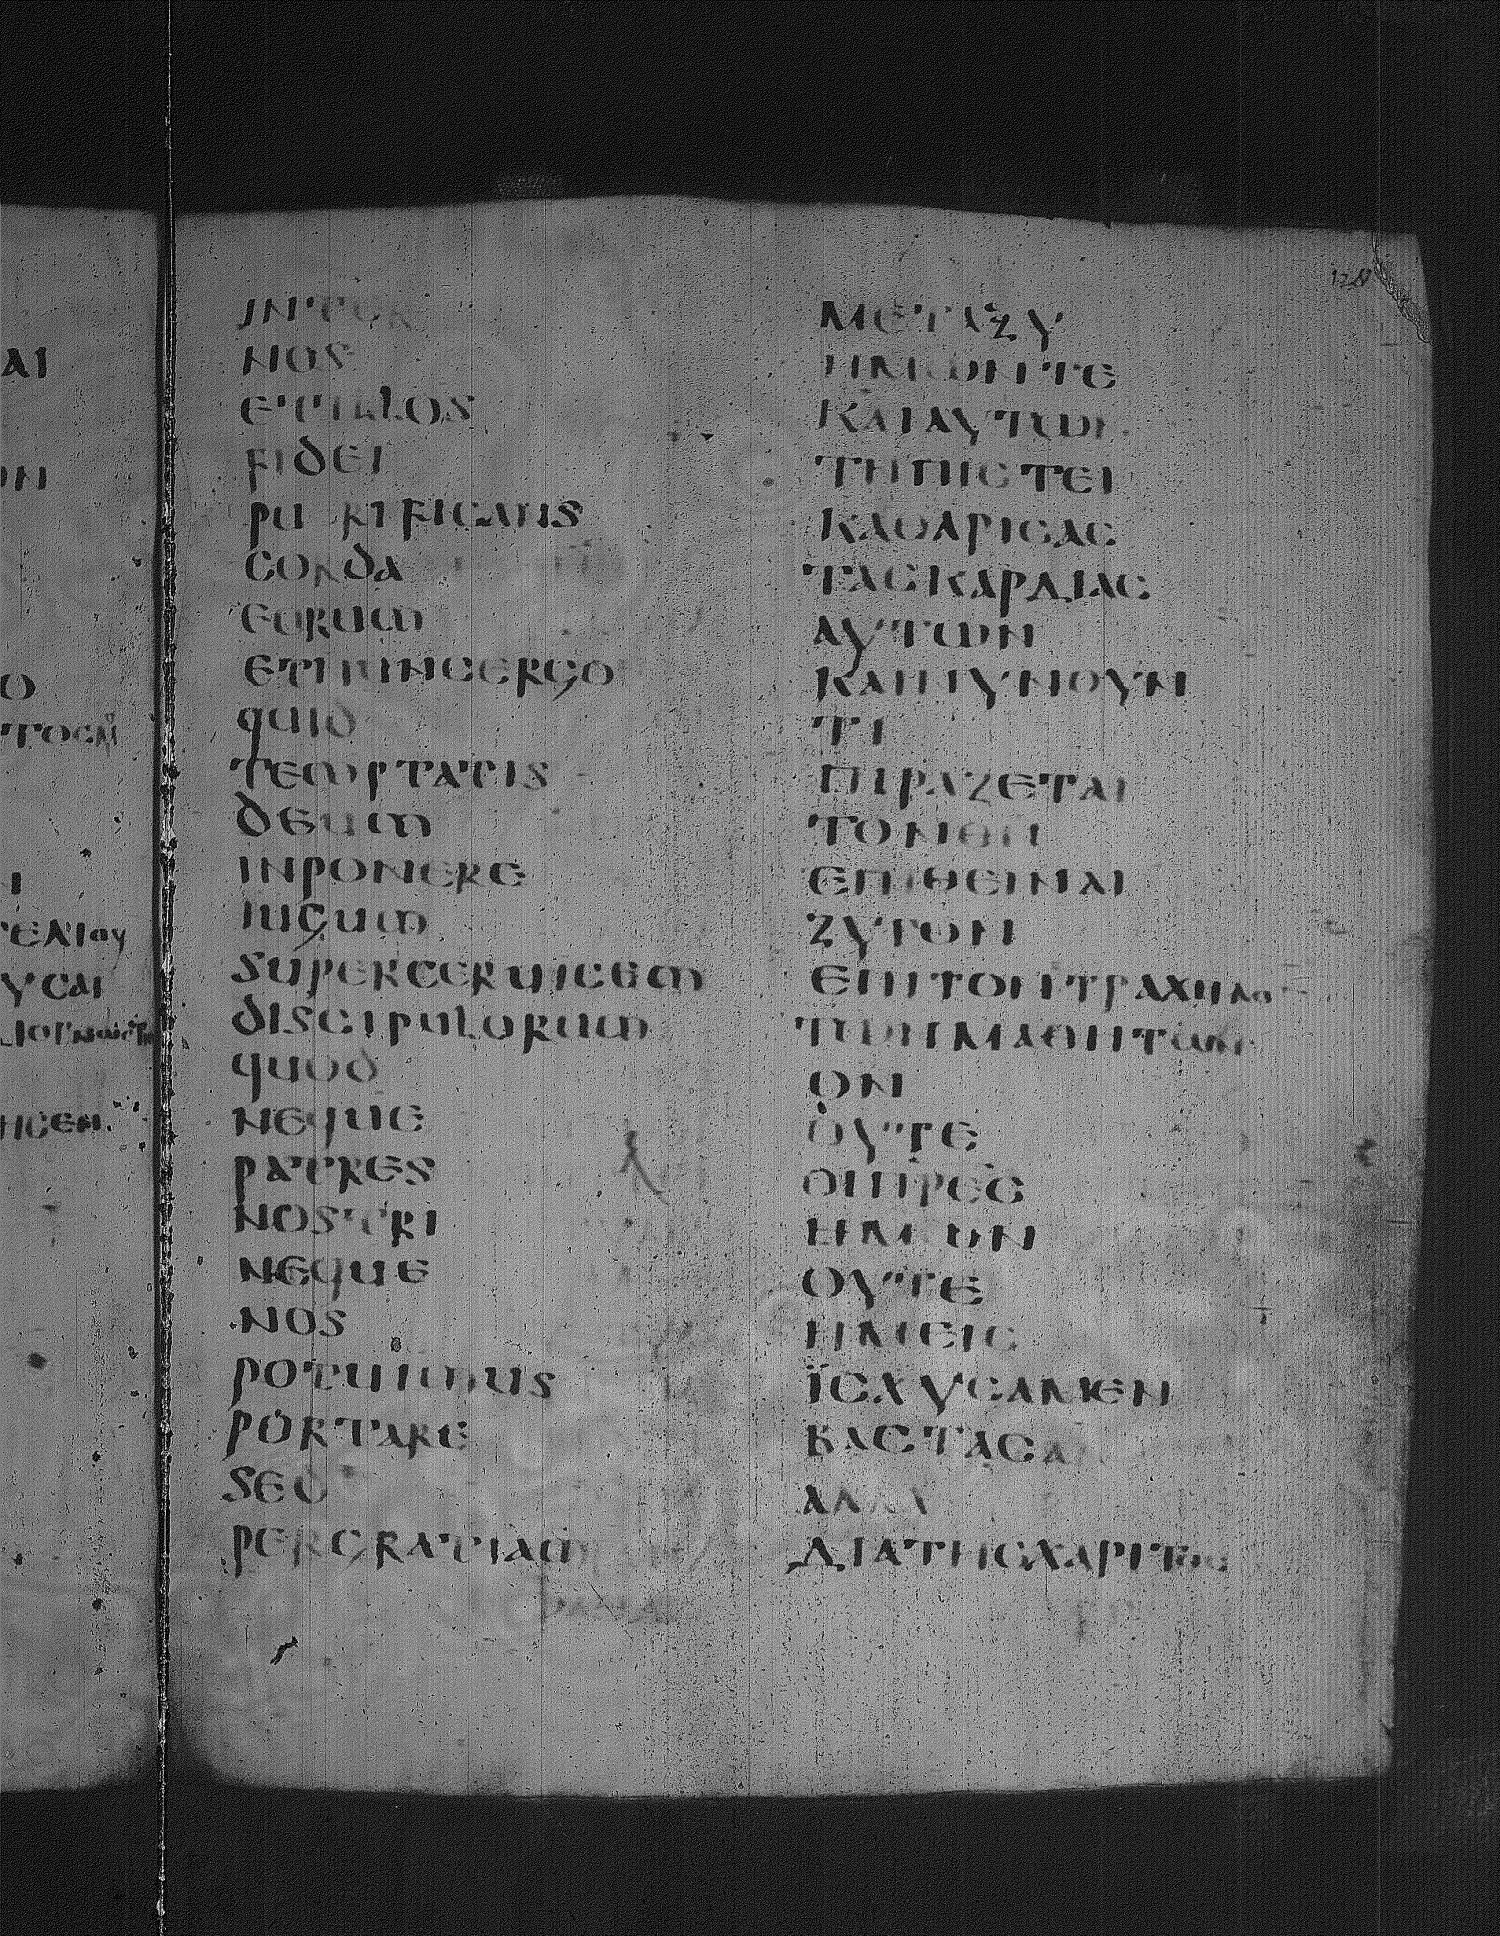 ΑΙ
ΕΛΙΟΥ
ΥϹΑΙ
ΗϹΕΝ
INTER
NOS
ETILLOS
FIDEI
PURIFICANS
CORDA
EORUM
ETNUNCERGO
QUID
TEMPTATIS
DEUM
INPONERE
IUGUM
SUPERCERUICEM
DISCIPULORUM
QUOD
NEQUE
PATRES
NOSTRI
NEQUE
NOS
POTUIMUS
PORTARE
SED
PERGRATIAM
ΜΕΤΑΞΥ
ΗΜΩΝΤΕ
ΚΑΙΑΥΤΩΝ
ΤΗΠΙϹΤΕΙ
ΚΑΘΑΡΙϹΑϹ
ΤΑϹΚΑΡΔΙΑϹ
ΑΥΤΩΝ
ΚΑΙΝΥΝΟΥΝ
ΤΙ
ΠΙΡΑΖΕΤΑΙ
ΤΟΝΘΝ
ΕΠΙΘΕΙΝΑΙ
ΖΥΓΟΝ
ΕΠΙΤΟΝΤΡΑΧΗΛΟ
ΤΩΝΜΑΘΗΤΩΝ
ΟΝ
ΟΥΤΕ
ΟΙΠΡΕϹ
ΗΜΩΝ
ΟΥΤΕ
ΗΜΕΙϹ
ΪϹΧΥϹΑΜΕΝ
ΒΑϹΤΑϹΑΙ
ΑΛΛΑ
ΔΙΑΤΗϹΧΑΡΙΤΟϹ